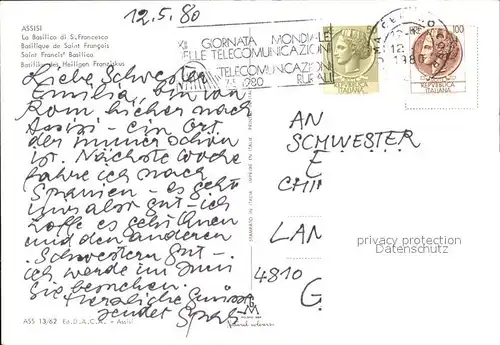 12.5.80
ASSISI
La Basilica di S. Francesco
Basilique de Saint François
Saint Francis' Basilica
Basilika des Heiligen Franziskus
XII GIORNATA MONDIALE
DELLE TELECOMUNICAZIONI
TELECOMUNICAZIONI
RURALI
1980
12
1980
REPVBBLICA
ITALIANA
100
REPVBBLICA
ITALIANA
Liebe Schwester
Emilia, bin von
Rom hieher nach
Assisi - ein Ort
der immer schön
ist. Nächste Woche
fahre ich nach
Spanien - es geht
uns gut - ich
hoffe es geht Ihnen
und den anderen
Schwestern gut -
ich werde im Juni
Sie besuchen.
Herzliche Grüsse
sendet
AN
SCHWESTER
E
CHI
LAN
4810
G
privacy protection
Datenschutz
STAMPATO IN ITALIA - IMPRIMÉ EN ITALIE - PRINTED IN ITALY
ASS 13/62 Ed. D.A.C.A. - Assisi